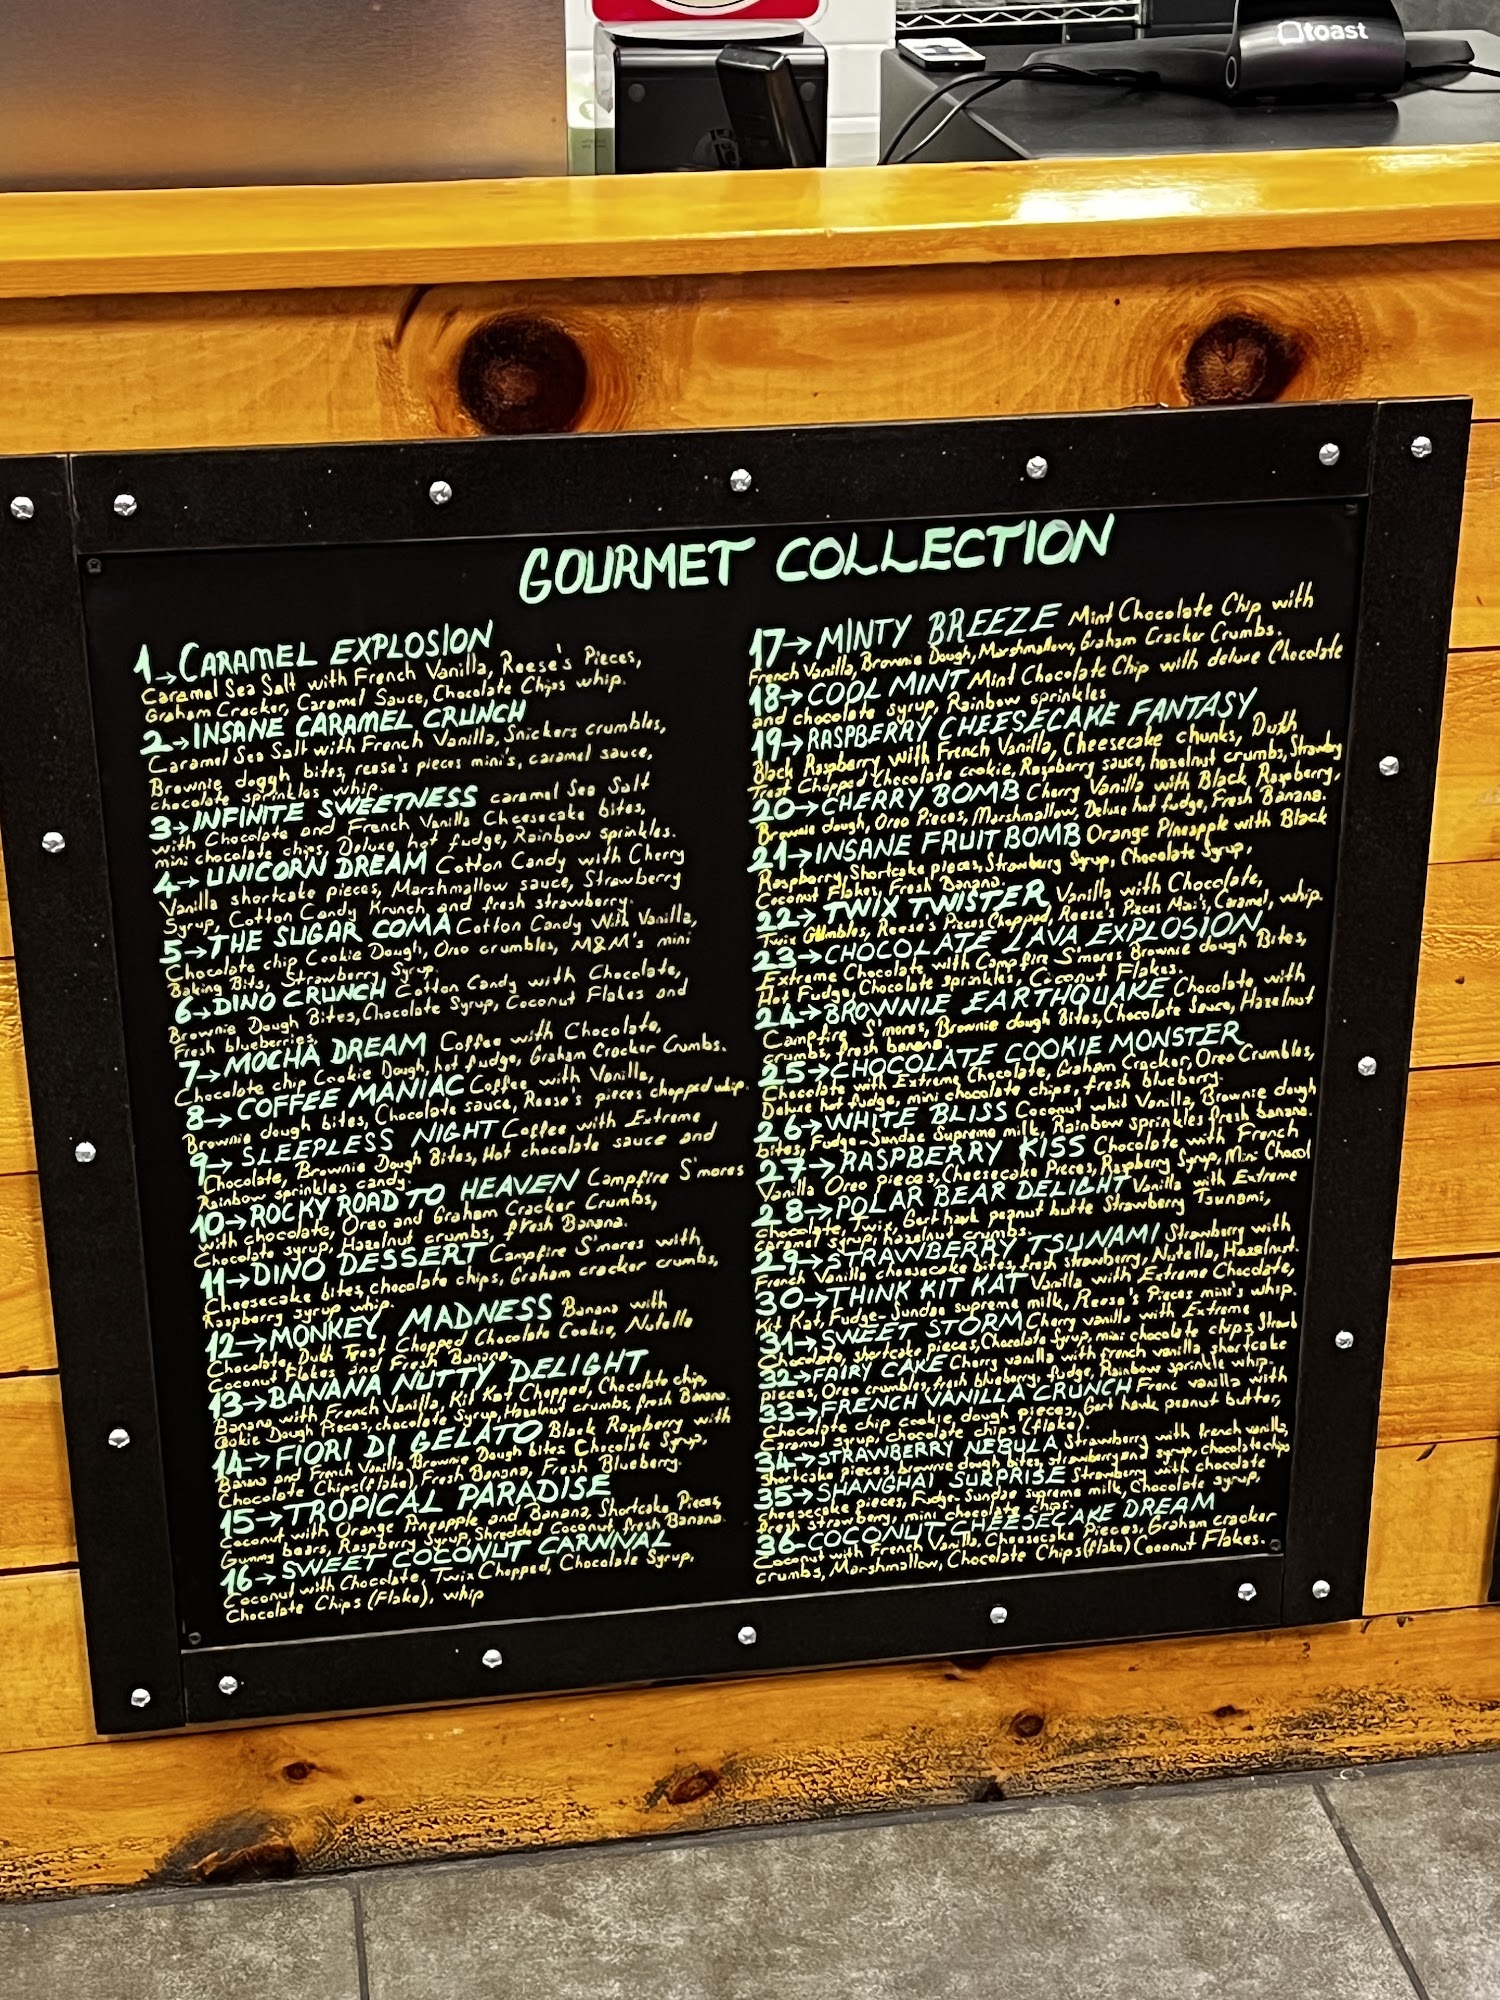 toast
GOURMET COLLECTION
1→CARAMEL EXPLOSION
Caramel Sea Salt with French Vanilla, Reese's Pieces,
Graham Cracker, Caramel Sauce, Chocolate Chips whip.
2→INSANE CARAMEL CRUNCH
Caramel Sea Salt with French Vanilla, Snickers crumbles,
Brownie doggh bites, reese's pieces mini's, caramel sauce,
chocolate sprinkles whip.
3→INFINITE SWEETNESS caramel Sea Salt
with Chocolate and French Vanilla Cheesecake bites,
mini chocolate chips, Deluxe hot fudge, Rainbow sprinkles.
4→UNICORN DREAM Cotton Candy with Cherry
Vanilla shortcake pieces, Marshmallow sauce, Strawberry
Syrup, Cotton Candy Krunch and fresh strawberry.
5→THE SUGAR COMA Cotton Candy With Vanilla,
Chocolate chip Cookie Dough, Oreo crumbles, M&M's mini
Baking Bits, Strawberry Syrup.
6→DINO CRUNCH Cotton Candy with Chocolate,
Brownie Dough Bites, Chocolate Syrup, Coconut Flakes and
Fresh blueberries.
7→MOCHA DREAM Coffee with Chocolate,
Chocolate chip Cookie Dough, hot fudge, Graham Cracker Crumbs.
8→COFFEE MANIAC Coffee with Vanilla,
Brownie dough bites, Chocolate sauce, Reese's pieces chopped whip.
9→SLEEPLESS NIGHT Coffee with Extreme
Chocolate, Brownie Dough Bites, Hot chocolate sauce and
Rainbow sprinkles candy.
10→ROCKY ROAD TO HEAVEN Campfire S'mores
with chocolate, Oreo and Graham Cracker Crumbs,
Chocolate syrup, Hazelnut crumbs, fresh Banana.
11→DINO DESSERT Campfire S'mores with
Cheesecake bites, chocolate chips, Graham cracker crumbs,
Raspberry syrup whip.
12→MONKEY MADNESS Banana with
Chocolate, Duth Treat Chopped Chocolate Cookie, Nutella
Coconut Flakes and Fresh Banana.
13→BANANA NUTTY DELIGHT
Banana with French Vanilla, Kit Kat Chopped, Chocolate chip,
Cookie Dough Pieces, chocolate Syrup, Hazelnut crumbs, fresh Banana.
14→FIORI DI GELATO Black Raspberry with
Banana and French Vanilla, Brownie Dough bites Chocolate Syrup,
Chocolate Chips(flake) Fresh Banana, Fresh Blueberry.
15→TROPICAL PARADISE
Coconut with Orange Pineapple and Banana, Shortcake Pieces,
Gummy bears, Raspberry Syrup, Shredded Coconut, fresh Banana.
16→SWEET COCONUT CARNIVAL
Coconut with Chocolate, Twix Chopped, Chocolate Syrup,
Chocolate Chips (Flake), whip
17→MINTY BREEZE Mint Chocolate Chip with
French Vanilla, Brownie Dough, Marshmallow, Graham Cracker Crumbs.
18→COOL MINT Mint Chocolate Chip with deluxe Chocolate
and chocolate syrup, Rainbow sprinkles
19→RASPBERRY CHEESECAKE FANTASY
Black Raspberry with French Vanilla, Cheesecake chunks, Duth
Treat Chopped Chocolate cookie, Raspberry sauce, hazelnut crumbs, Strawbry
20→CHERRY BOMB Cherry Vanilla with Black Raspberry,
Brownie dough, Oreo Pieces, Marshmallow, Deluxe hot fudge, Fresh Banana.
21→INSANE FRUIT BOMB Orange Pineapple with Black
Raspberry, Shortcake pieces, Strawbury Syrup, Chocolate Syrup,
Coconut Flakes, Fresh Banana
22→TWIX TWISTER Vanilla with Chocolate,
Twix Reese's Pieces Chopped, Reese's Pieces Caramel, whip.
23→CHOCOLATE LAVA EXPLOSION
Extreme Chocolate with Campfire S'mores Brownie dough Bites,
Hot Fudge, Chocolate sprinkles, Coconut Flakes.
24→BROWNIE EARTHQUAKE Chocolate with
Campfire S'mores, Brownie dough Bites, Chocolate Sauce, Hazelnut
crumbs, fresh banana.
25→CHOCOLATE COOKIE MONSTER
Chocolate with Extreme Chocolate, Graham Cracker, Oreo Crumbles,
Deluxe hot fudge, mini chocolate chips, fresh blueberry.
26→WHITE BLISS Coconut whit Vanilla, Brownie dough
bites, Fudge-Sundae Supreme milk, Rainbow sprinkles fresh banana.
27→RASPBERRY KISS Chocolate with French
Vanilla Oreo pieces, Cheesecake Pieces, Raspberry Syrup, Mini Chocol
28→POLAR BEAR DELIGHT Vanilla with Extreme
Chocolate, Twix, Gert hawk peanut butte Strawberry Tsunami,
caramel syrup, hazelnut crumbs.
29→STRAWBERRY TSUNAMI Strawberry with
French Vanilla cheesecake bites, fresh strawberry, Nutella, Hazelnut.
30→THINK KIT KAT Vanilla with Extreme Chocolate,
Kit Kat, Fudge-Sundae supreme milk, Reese's Pieces mini's whip.
31→SWEET STORM Cherry vanilla with Extreme
Chocolate, shortcake pieces, Chocolate Syrup, mini chocolate chips, Strawb
32→FAIRY CAKE Cherry vanilla with french vanilla, shortcake
pieces, Oreo crumbles, fresh blueberry, fudge, Rainbow sprinkle whip
33→FRENCH VANILLA CRUNCH Frenc vanilla with
Chocolate chip cookie, dough pieces, Gert hawk peanut butter,
Caramel syrup, chocolate chips (flake).
34→STRAWBERRY NEBULA Strawberry with french vanilla,
shortcake pieces, brownie dough bites, strawberry and syrup, chocolate chips
35→SHANGHAI SURPRISE Strawberry with chocolate
cheesecake pieces, Fudge-Sundae supreme milk, Chocolate syrup,
fresh strawberry, mini chocolate chips.
36-COCONUT CHEESECAKE DREAM
Coconut with French Vanilla, Cheesecake Pieces, Graham cracker
crumbs, Marshmallow, Chocolate Chips(flake) Coconut Flakes.